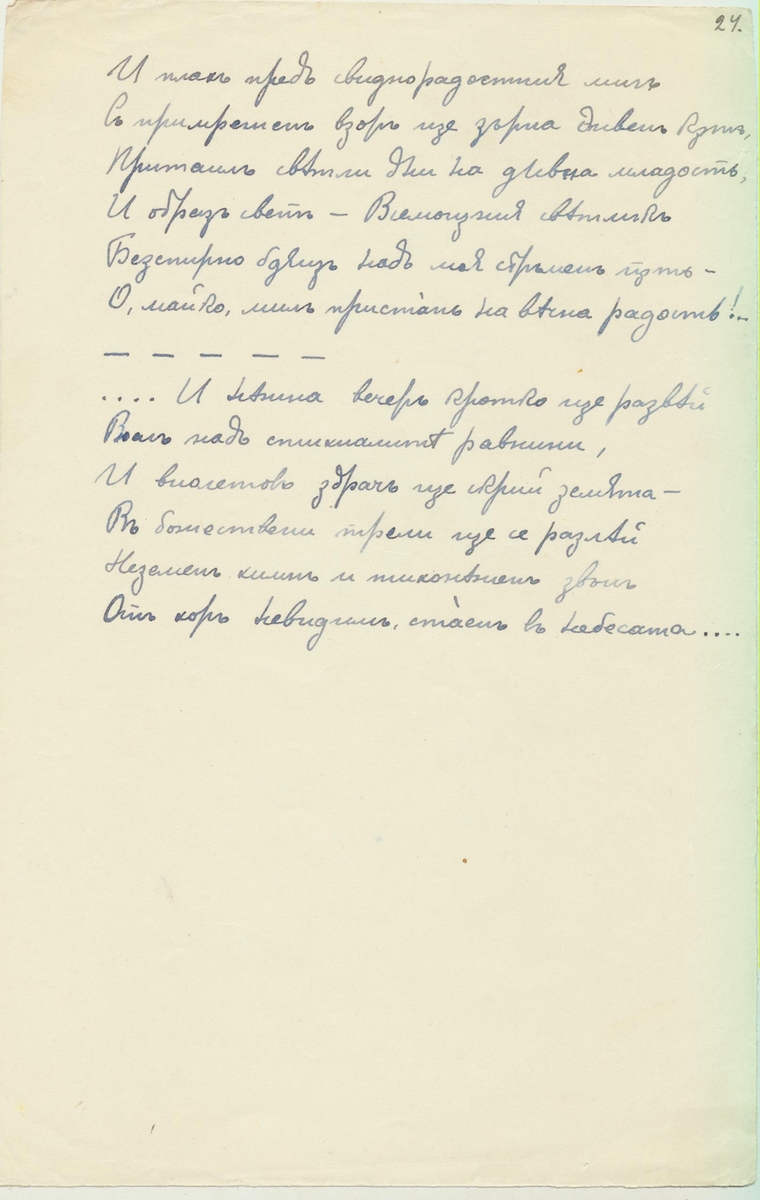 24.
И плахъ предъ свиднорадостния мигъ
Съ примреженъ взоръ ще зърна дивенъ кѫтъ,
Притаилъ свѣтли дни на дѣвна младость,
И образъ светъ — Всемогущия свѣтликъ
Безспирно бдящъ надъ моя стръменъ пѫть —
О, майко, милъ пристанъ на вѣчна радость!..
— — — — —
.... И нѣжна вечерь кротко ще развѣй
Воалъ надъ стихналитѣ равнини,
И виолетовъ здрачъ ще скрий земята —
Въ божествени трели ще се разлѣй
Неземенъ химнъ и тихонѣженъ звонъ
Отъ хоръ невидимъ, стаенъ въ небесата....